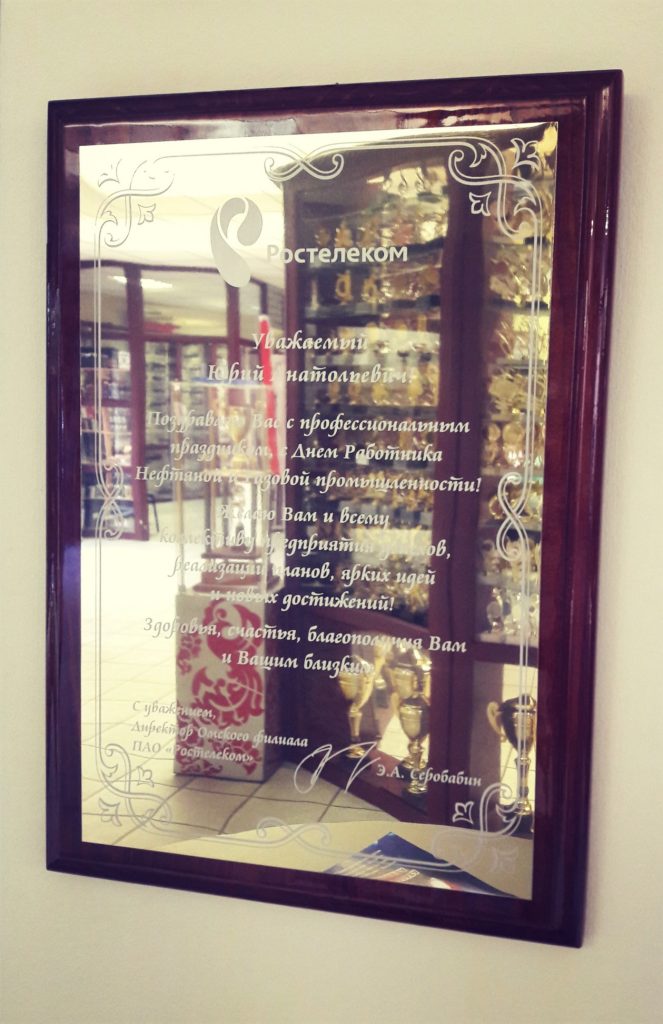 Ростелеком
Уважаемый
Юрий Анатольевич!
Поздравляю Вас с профессиональным
праздником, с Днем Работника
Нефтяной и Газовой промышленности!
Желаю Вам и всему
коллективу предприятия успехов,
реализации планов, ярких идей
и новых достижений!
Здоровья, счастья, благополучия Вам
и Вашим близким!
С уважением,
Директор Омского филиала
ПАО «Ростелеком»
Э.А. Серобабин